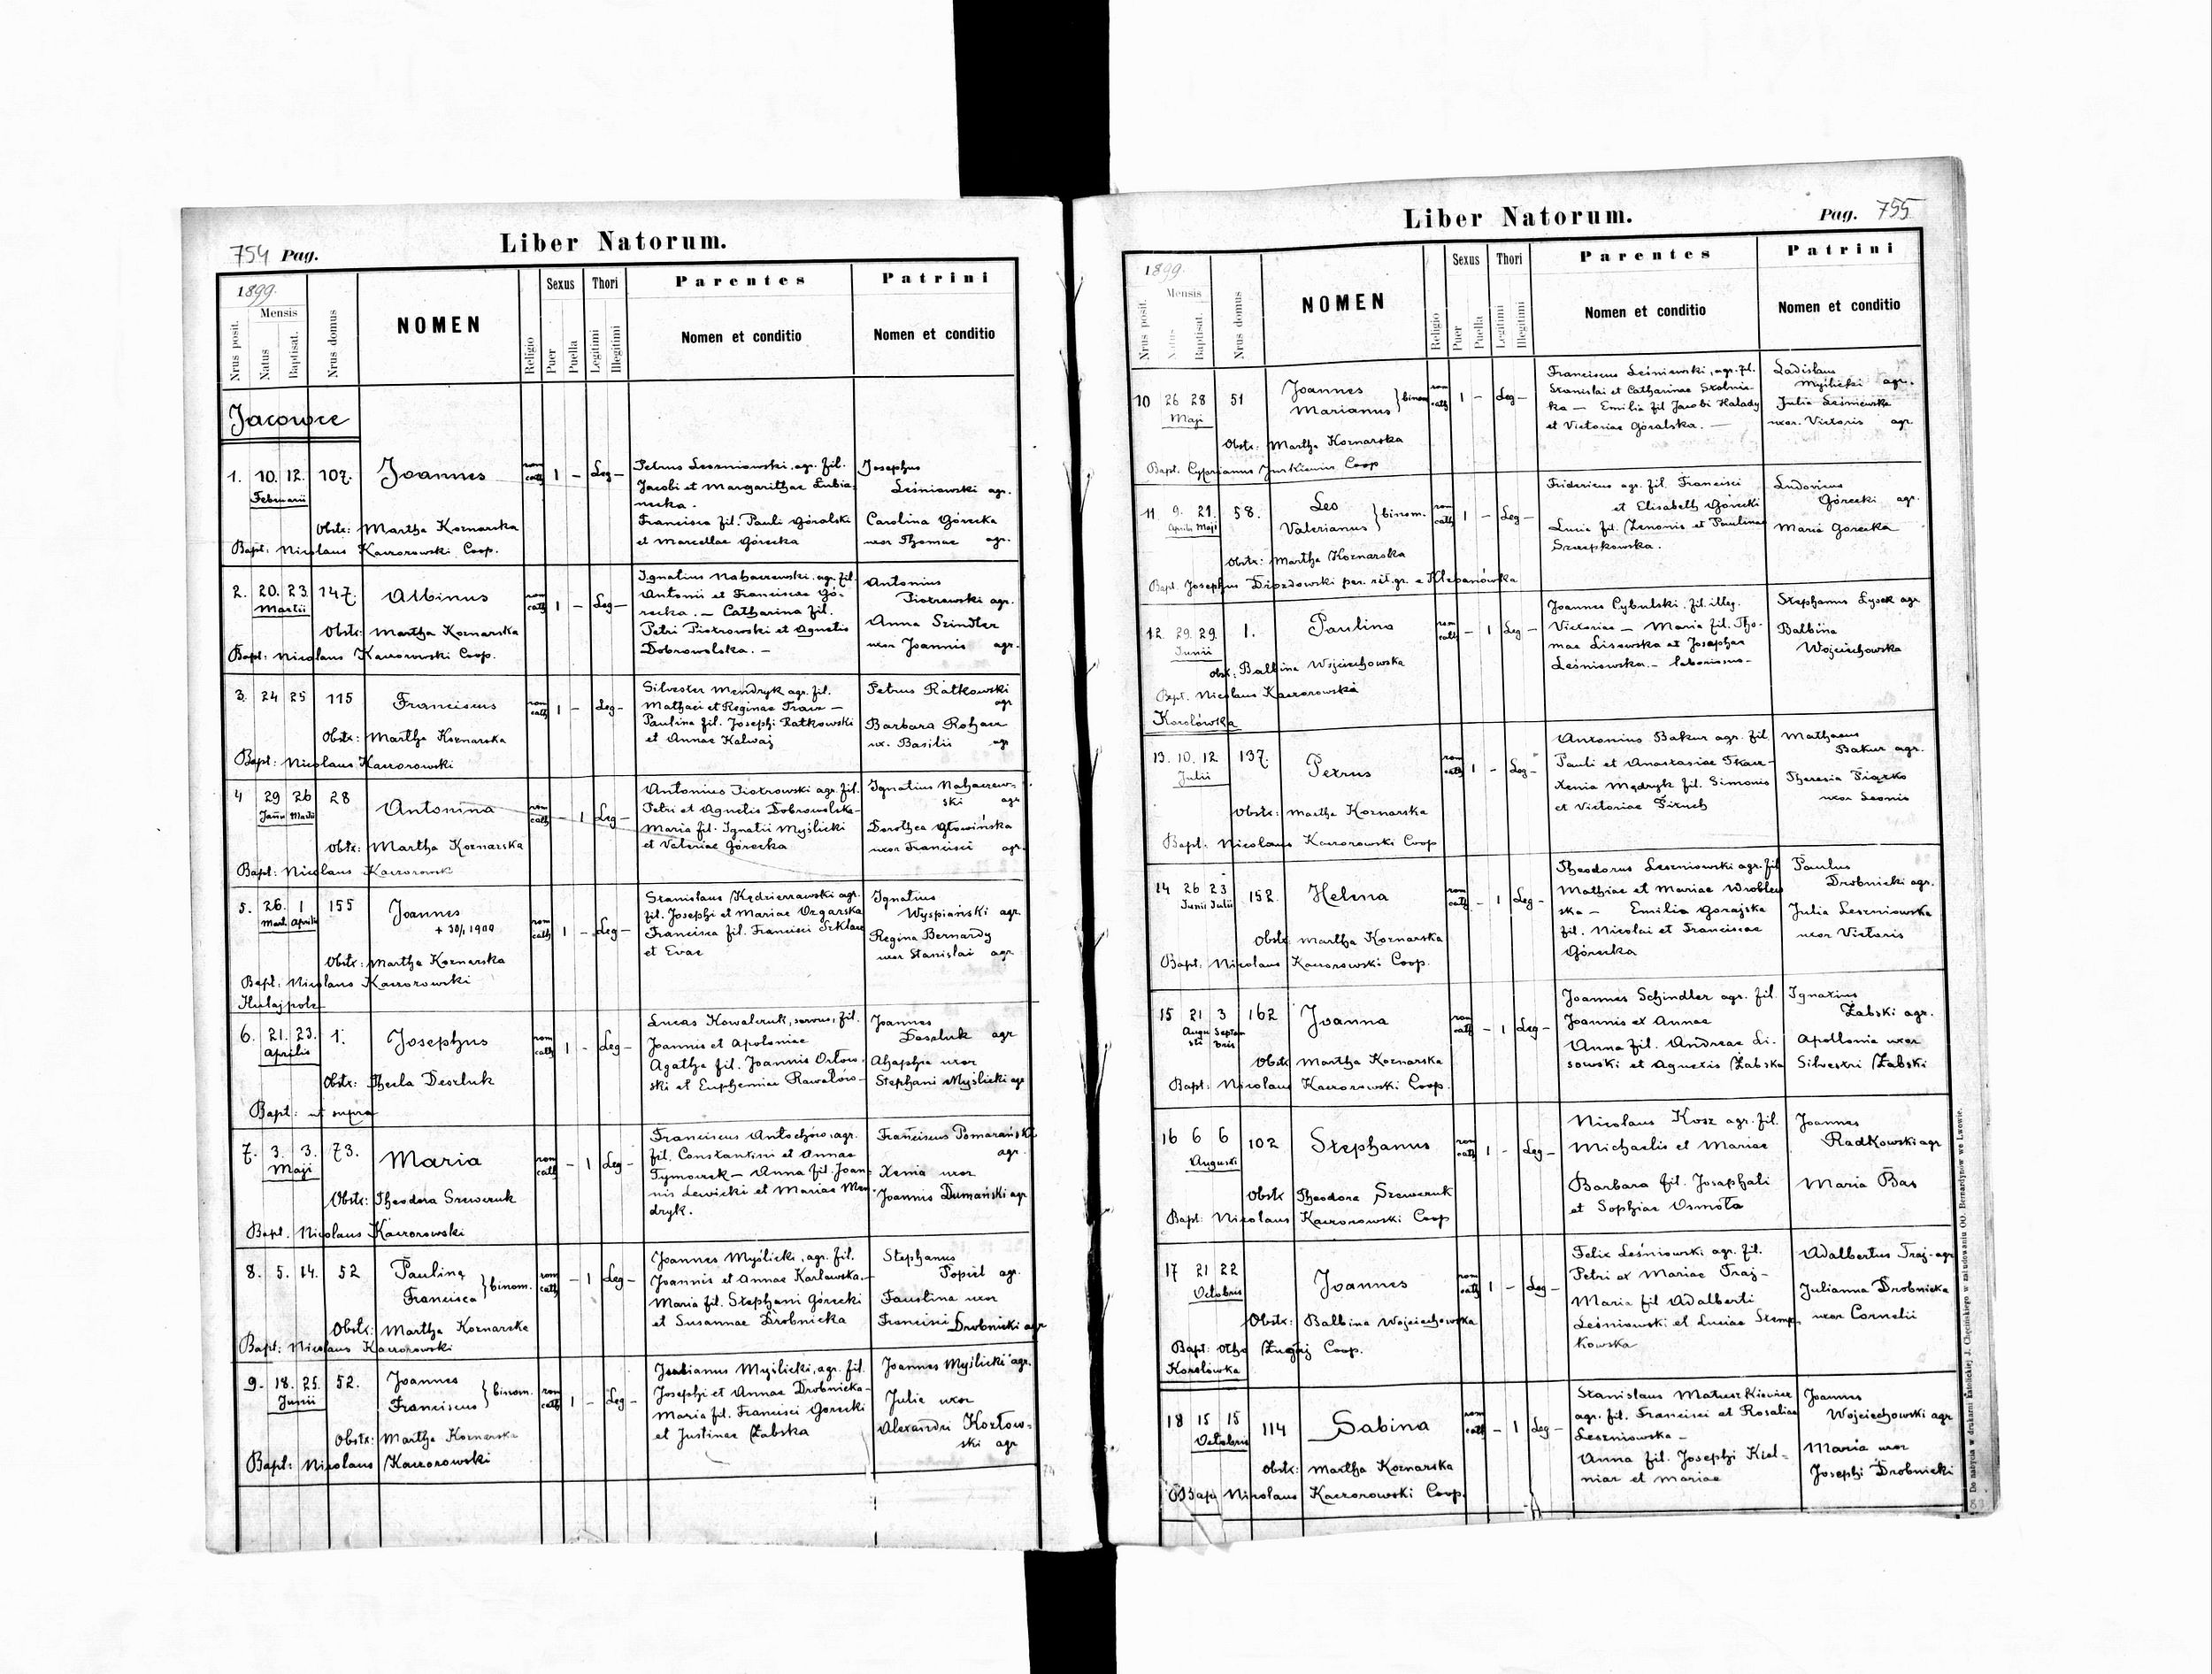 754 Pag.
Liber Natorum.
1899.
Mensis
Nrus posit.
Natus
Baptisat.
Nrus domus
NOMEN
Religio
Sexus
Puer
Puella
Thori
Legitimi
Illegitimi
Parentes
Nomen et conditio
Patrini
Nomen et conditio
Jacowce
1. 10. 12. 107. Joannes rom cath 1 – Leg –
Februarii
Petrus Leszniowski, agr. fil.
Jacobi et Margarithae Lubia-
necka.
Francisca fil. Pauli Góralski
et Marcellae Górecka
Josephus
Leśniowski agr.
Carolina Górecka
uxor Thomae agr.
Obstx: Martha Koznarska
Bapt: Nicolaus Kaczorowski Coop.
2. 20. 23. 147. Albinus rom cath 1 – Leg –
Martii
Ignatius Nahaczewski, agr. fil.
Antonii et Franciscae Gó-
recka. – Catharina fil.
Petri Piotrowski et Agnetis
Dobrowolska. –
Antonius
Piotrowski agr.
Anna Szindler
uxor Joannis agr.
Obstx: Martha Koznarska
Bapt: Nicolaus Kaczorowski Coop.
3. 24 25 115 Franciscus rom cath 1 – Leg –
Silvester Mendryk agr. fil.
Mathaei et Reginae Tracz –
Paulina fil. Josephi Ratkowski
et Annae Kalwaj
Petrus Ratkowski
agr
Barbara Rohacz
ux. Basilii agr
Obstx: Martha Koznarska
Bapt: Nicolaus Kaczorowski
4 29 26 28 Antonina rom cath – 1 Leg –
Janu Martii
Antonius Piotrowski agr. fil.
Petri et Agnetis Dobrowolska–
Maria fil. Ignatii Myślicki
et Valeriae Górecka
Ignatius Nahaczew-
ski agr
Dorothea Głowińska
uxor Francisci agr.
Obstx: Martha Koznarska
Bapt: Nicolaus Kaczorowsk
5. 26. 1 155 Joannes rom cath 1 – Leg –
Mart. Aprilis
+ 30/1 1900
Stanislaus Kędzierzawski agr.
fil. Josephi et Mariae Ozgarska
Francisca fil. Francisci Szklarz
et Evae
Ignatius
Wyspiański agr.
Regina Bernardy
uxor Stanislai agr.
Obstx: Martha Koznarska
Bapt: Nicolaus Kaczorowski
Hulajpole
6. 21. 23. 1. Josephus rom cath 1 – Leg –
Aprilis
Lucas Kowalczuk, servus, fil.
Joannis et Apoloniae
Agatha fil. Joannis Orłow-
ski et Euphemiae
Joannes
agr
Ahaphia uxor
Stephani Myślicki agr
Obstx: Thecla Deszluk
Bapt: ut supra
7. 3. 3. 73. Maria rom cath – 1 Leg –
Maji
Franciscus Antochów, agr.
fil. Constantini et Annae
Tymoczek – Anna fil. Joan-
nis Lewicki et Mariae Men-
dryk.
Franciscus Pomarański
agr.
Xenia uxor
Joannis Dumański agr
Obstx: Theodora Szewczuk
Bapt. Nicolaus Kaczorowski
8. 5. 14. 52 Paulina rom cath – 1 Leg –
Francisca } binom.
Joannes Myślicki, agr. fil.
Joannis et Annae Karlawska –
Maria fil. Stephani Górecki
et Susannae Drobnicka
Stephanus
Popiel agr.
Faustina uxor
Francisci Drobnicki agr
Obstx: Martha Koznarska
Bapt: Nicolaus Kaczorowski
9. 18. 25. 52. Joannes rom cath 1 – Leg –
Junii
Franciscus } binom.
Myślicki, agr. fil.
Josephi et Annae Drobnicka –
Maria fil. Francisci Gorecki
et Justinae Żabska
Joannes Myślicki agr.
Julia uxor
Alexandri Kozłow-
ski agr
Obstx: Martha Koznarska
Bapt: Nicolaus Kaczorowski
Liber Natorum.
Pag. 755
1899.
Mensis
Nrus posit.
Natus
Baptisat.
Nrus domus
NOMEN
Religio
Sexus
Puer
Puella
Thori
Legitimi
Illegitimi
Parentes
Nomen et conditio
Patrini
Nomen et conditio
10 26 28 51 Joannes rom cath 1 – Leg –
Maji
Marianus } binom
Franciscus Leśniewski, agr. fil.
Stanislai et Catharinae Stolnic-
ka – Emilia fil Jacobi Halady
et Victoriae Góralska. –
Ladislaus
Myślicki agr.
Julia Leśniewska
uxor. Victoris agr.
Obstx: Martha Koznarska
Bapt. Cyprianus Jurkiewicz Coop
11 9. 21. 58. Leo rom cath 1 – Leg –
Aprilis Maji
Valerianus } binom.
Fridericus agr. fil. Francisci
et Elisabeth Górecki
Lucia fil. Zenonis et Paulinae
Szczepkowska.
Ludovicus
Górecki agr.
Maria Gorecka
Obstx: Martha Koznarska
Bapt. Josephus Drozdowski par. rit. gr. e Klebanówka
12. 29. 29. 1. Paulina rom cath – 1 Leg –
Junii
Joannes Cybulski, fil. illeg.
Victoriae – Maria fil. Tho-
mae Lisowska et Josephae
Leśniowska. –
Stephanus Łysak agr
Balbina
Wojciechowska
Obst: Balbina Wojciechowska
Bapt. Nicolaus Kaczorowski
Korolówka
13. 10. 12. 137. Petrus rom cath 1 – Leg –
Julii
Antonius Bakur agr. fil
Pauli et Anastasiae Tkacz –
Xenia Mędryk fil. Simonis
et Victoriae Pirnch
Mathaeus
Bakur agr.
Theresia Piątko
uxor Leonis
Obstx: Martha Koznarska
Bapt: Nicolaus Kaczorowski Coop
14 26 23 152. Helena rom cath – 1 Leg –
Junii Julii
Theodorus Leszniowski agr. fil
Mathiae et Mariae Wroblew
ska – Emilia Gorajska
fil. Nicolai et Franciscae
Górecka
Paulus
Drobnicki agr.
Julia Leszniowska
uxor Victoris
Obstx Martha Koznarska
Bapt: Nicolaus Kaczorowski Coop.
15 21 3 162 Joanna rom cath – 1 Leg –
Augu sti Septem bris
Joannes Schindler agr. fil.
Joannis et Annae
Anna fil. Andreae Li-
sowski et Agnetis Żabska
Ignatius
Żabski agr.
Apollonia uxor
Silvestri Żabski
Obstx Martha Koznarska
Bapt: Nicolaus Kaczorowski Coop.
16 6 6 102 Stephanus rom cath 1 – Leg –
Augusti
Nicolaus Kosz agr. fil.
Michaelis et Mariae
Barbara fil. Josaphati
et Sophiae Osmoła
Joannes
Radkowski agr
Maria Bas
Obstx Theodora Szewczuk
Bapt: Nicolaus Kaczorowski Coop
17 21 22 Joannes rom cath 1 – Leg –
Octobris
Felix Leśniowski agr. fil.
Petri et Mariae Traj –
Maria fil Adalberti
Leśniowski et Luciae Szczep
kowska
Adalbertus Traj – agr
Julianna Drobnicka
uxor Cornelii
Obstx: Balbina Wojciechowska
Bapt: Otho Coop.
Korolówka
18 15 15 114 Sabina rom cath – 1 Leg –
Octobris
Stanislaus Matuszkiewicz
agr. fil. Francisci et Rosaliae
Leszniowska –
Anna fil. Josephi Kiel-
niar et Mariae
Joannes
Wojciechowski agr
Maria uxor
Josephi Drobnicki
Obstx: Martha Koznarska
Bapt Nicolaus Kaczorowski Coop.
Do nabycia w drukarni katolickiej J. Chęcińskiego w zabudowaniu OO. Bernardynów we Lwowie.